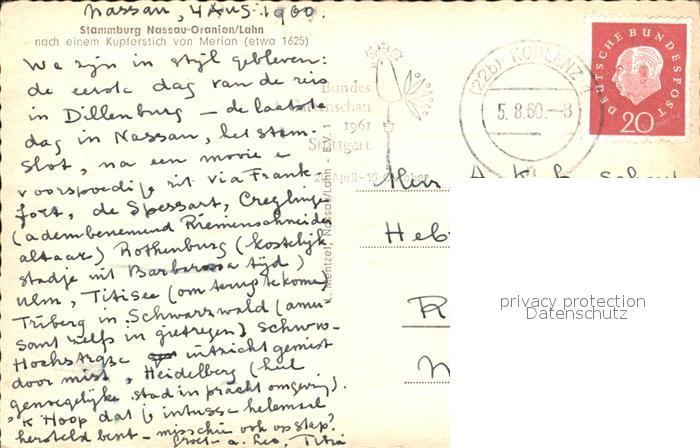 Nassau, 4 Aug. 1960.
Stammburg Nassau-Oranien/Lahn
nach einem Kupferstich von Merian (etwa 1625)
We zijn in stijl gebleven:
de eerste dag van de reis
in Dillenburg – de laatste
dag in Nassau, het stam-
slot, na een mooie e
voorspoedige rit via Frank-
fort, de Spessart, Creglingen
(adembenemend Riemenschneider
altaar) Rothenburg (kostelijk
stadje uit Barbarossa tijd)
Ulm, Titisee (om terug te komen)
Triberg in Schwarzwald (amu-
sant zelfs in gietregen) Schwarz-
Hochstrasse uitzicht gemist
door mist, Heidelberg (heel
genoegelijke stad in pracht omgeving).
'k Hoop dat je intuss- helemaal
hersteld bent – misschien ook op stap?
groet- a. Leo, Titia
Bundes
Gartenschau
1961
Stuttgart
April-
Mentzel, Nassau/Lahn
(22b) KOBLENZ 1
5.8.60.–8
DEUTSCHE BUNDESPOST
20
Heer A.
Heb
R
privacy protection
Datenschutz